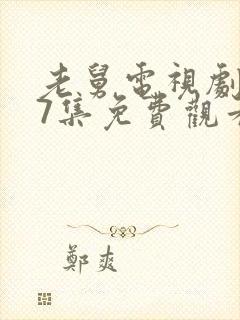 老舅電視劇
7集免費觀看
鄭爽